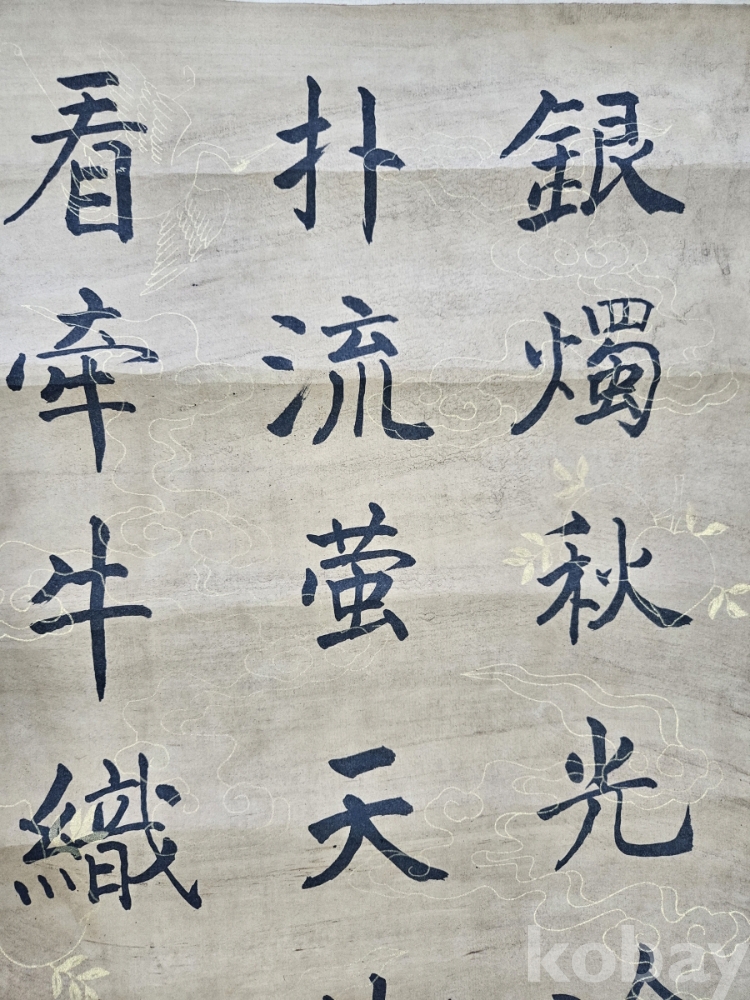 銀燭秋光
扑流萤天
看牽牛織
kobay